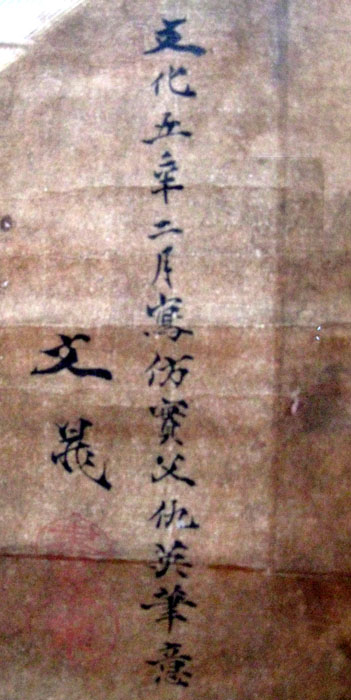 文化五年二月寫仿實父仇英筆意
文晁